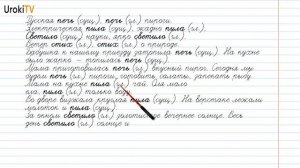 UrokiTV
Русская печь (сущ.), печь (гл.) пироги.
Электрическая пила (сущ.), жадно пила (гл.).
Светило (сущ.) науки, ярко светило (гл.).
Ветер стих (гл.), стих (сущ.) о природе.
Бабушка к нашему приезду затопила печь (сущ.). На кухне
было жарко – топилась печь (сущ.).
Мама приготовилась печь (гл.) вкусный пирог. Сегодня мы
будем печь (гл.) пироги, готовить салаты, запекать рыбу.
Мама на кухне пила (гл.) чай. Оля мало
ела, пила (гл.) только воду.
Во дворе визжала круглая пила (сущ.). На верстаке лежали
молоток и пила (сущ.).
За окном светило (гл.) золотистое вечернее солнце. Весь
день светило (гл.) солнце и